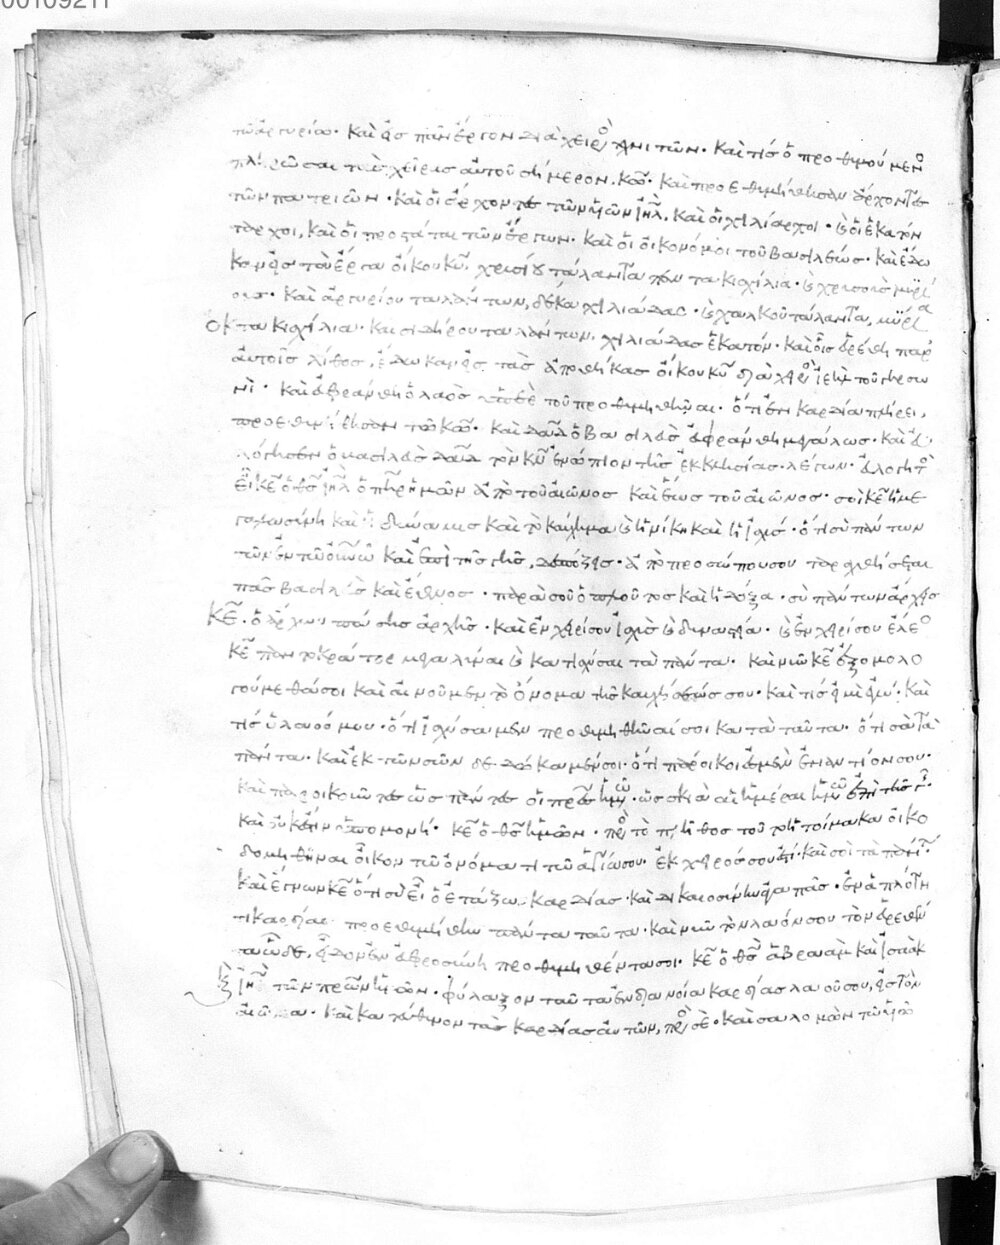 00109211
τῶ ἀργυρίω· καὶ εἰς πᾶν ἔργον διὰ χειρὸς τεχνιτῶν· καὶ τίς ὁ προθυμούμενο
πληρῶσαι τὰς χεῖρας αὐτοῦ σήμερον κω· καὶ προεθυμήθησαν ἄρχοντες
τῶν πατριῶν· καὶ οἱ ἄρχοντες τῶν υἱῶν ιηλ, καὶ οἱ χιλίαρχοι· καὶ οἱ ἑκατόν
ταρχοι, καὶ οἱ προστάται τῶν ἔργων· καὶ οἱ οἰκονόμοι τοῦ βασιλέως· καὶ ἔδω
καν εἰς τὰ ἔργα οἴκου κυ, χρυσίου τάλαντα πεντακισχίλια· καὶ χρυσοῦς μυρί
ους· καὶ ἀργυρίου ταλάντων, δέκα χιλιάδας· καὶ χαλκοῦ τάλαντα, μύρια
ὀκτακισχίλια· καὶ σιδήρου ταλάντων, χιλιάδας ἑκατόν· καὶ οἷς εὑρέθη παρ
αὐτοῖς λίθος, ἔδωκαν εἰς τὰς ἀποθήκας οἴκου κυ διὰ χειρὸς ἰεὴλ τοῦ γηρσω
νί· καὶ εὐφράνθη ὁ λαὸς ὑπὲρ τοῦ προθυμηθῆναι· ὅτι ἐν καρδία πλήρει,
προεθυμήθησαν τῶ κω· καὶ δαδ ὁ βασιλεὺς εὐφράνθη μεγάλως· καὶ εὐ
λόγησεν ὁ βασιλεὺς δαδ τὸν κν ἐνώπιον τῆς ἐκκλησίας λέγων· εὐλογητὸ
εἶ κε ὁ θς ιηλ ὁ πηρ ἡμῶν ἀπὸ τοῦ αἰῶνος καὶ ἕως τοῦ αἰῶνος· σοὶ κε ἡ με
γαλωσύνη καὶ ἡ δύναμις καὶ τὸ καύχημα καὶ ἡ νίκη καὶ ἡ ἰσχύς· ὅτι σὺ πάντων
τῶν ἐν τῶ οὐνῶ καὶ ἐπὶ τῆς γῆς, δεσπόζεις· ἀπὸ προσώπου σου ταραχθήσεται
πᾶς βασιλεὺς καὶ ἔθνος· παρὰ σοῦ ὁ πλοῦτος καὶ ἡ δόξα· σὺ πάντων ἄρχεις
κε· ὁ ἄρχων πάσης ἀρχῆς· καὶ ἐν χειρί σου ἰσχὺς καὶ δυναστεία· καὶ ἐν χειρί σου ἔλεο
κε παντοκράτορ μεγαλῦναι καὶ κατισχύσαι τὰ πάντα· καὶ νῦν κε ἐξομολο
γούμεθά σοι καὶ αἰνοῦμεν τὸ ὄνομα τῆς καυχήσεώς σου· καὶ τίς εἰμὶ ἐγώ· καὶ
τίς ὁ λαός μου· ὅτι ἰσχύσαμεν προθυμηθῆναί σοι κατὰ ταῦτα· ὅτι σὰ τὰ
πάντα· καὶ ἐκ τῶν σῶν δεδώκαμέν σοι· ὅτι πάροικοι ἐσμὲν ἐναντίον σου·
καὶ παροικοῦντες ὡς πάντες οἱ πρες ἡμῶν· ὡς σκιὰ αἱ ἡμέραι ἡμῶν ἐπὶ τῆς γῆς·
καὶ οὐκ ἔστιν ὑπομονή· κε ὁ θς ἡμῶν· πρὸς τὸ πλῆθος τοῦτο ἡτοίμακα οἰκο
δομηθῆναι οἶκον τῶ ὀνόματι τῶ ἁγίω σου· ἐκ χειρός σου ἐστί· καὶ σοὶ τὰ πάντα·
καὶ ἔγνων κε ὅτι σὺ εἶ ὁ ἐτάζων καρδίας· καὶ δικαιοσύνην ἀγαπᾶς· ἐν ἁπλότη
τι καρδίας προεθυμήθην πάντα ταῦτα· καὶ νῦν τὸν λαόν σου τὸν εὑρεθέν
τα ὧδε, εἶδον ἐν εὐφροσύνη προθυμηθέντα σοι· κε ὁ θς ἀβραὰμ καὶ ἰσαὰκ
καὶ ιηλ τῶν πρων ἡμῶν· φύλαξον ταῦτα ἐν διανοία καρδίας λαοῦ σου, εἰς τὸν
αἰῶνα· καὶ κατεύθυνον τὰς καρδίας αὐτῶν, πρὸς σέ· καὶ σαλομὼν τῶ υἱῶ